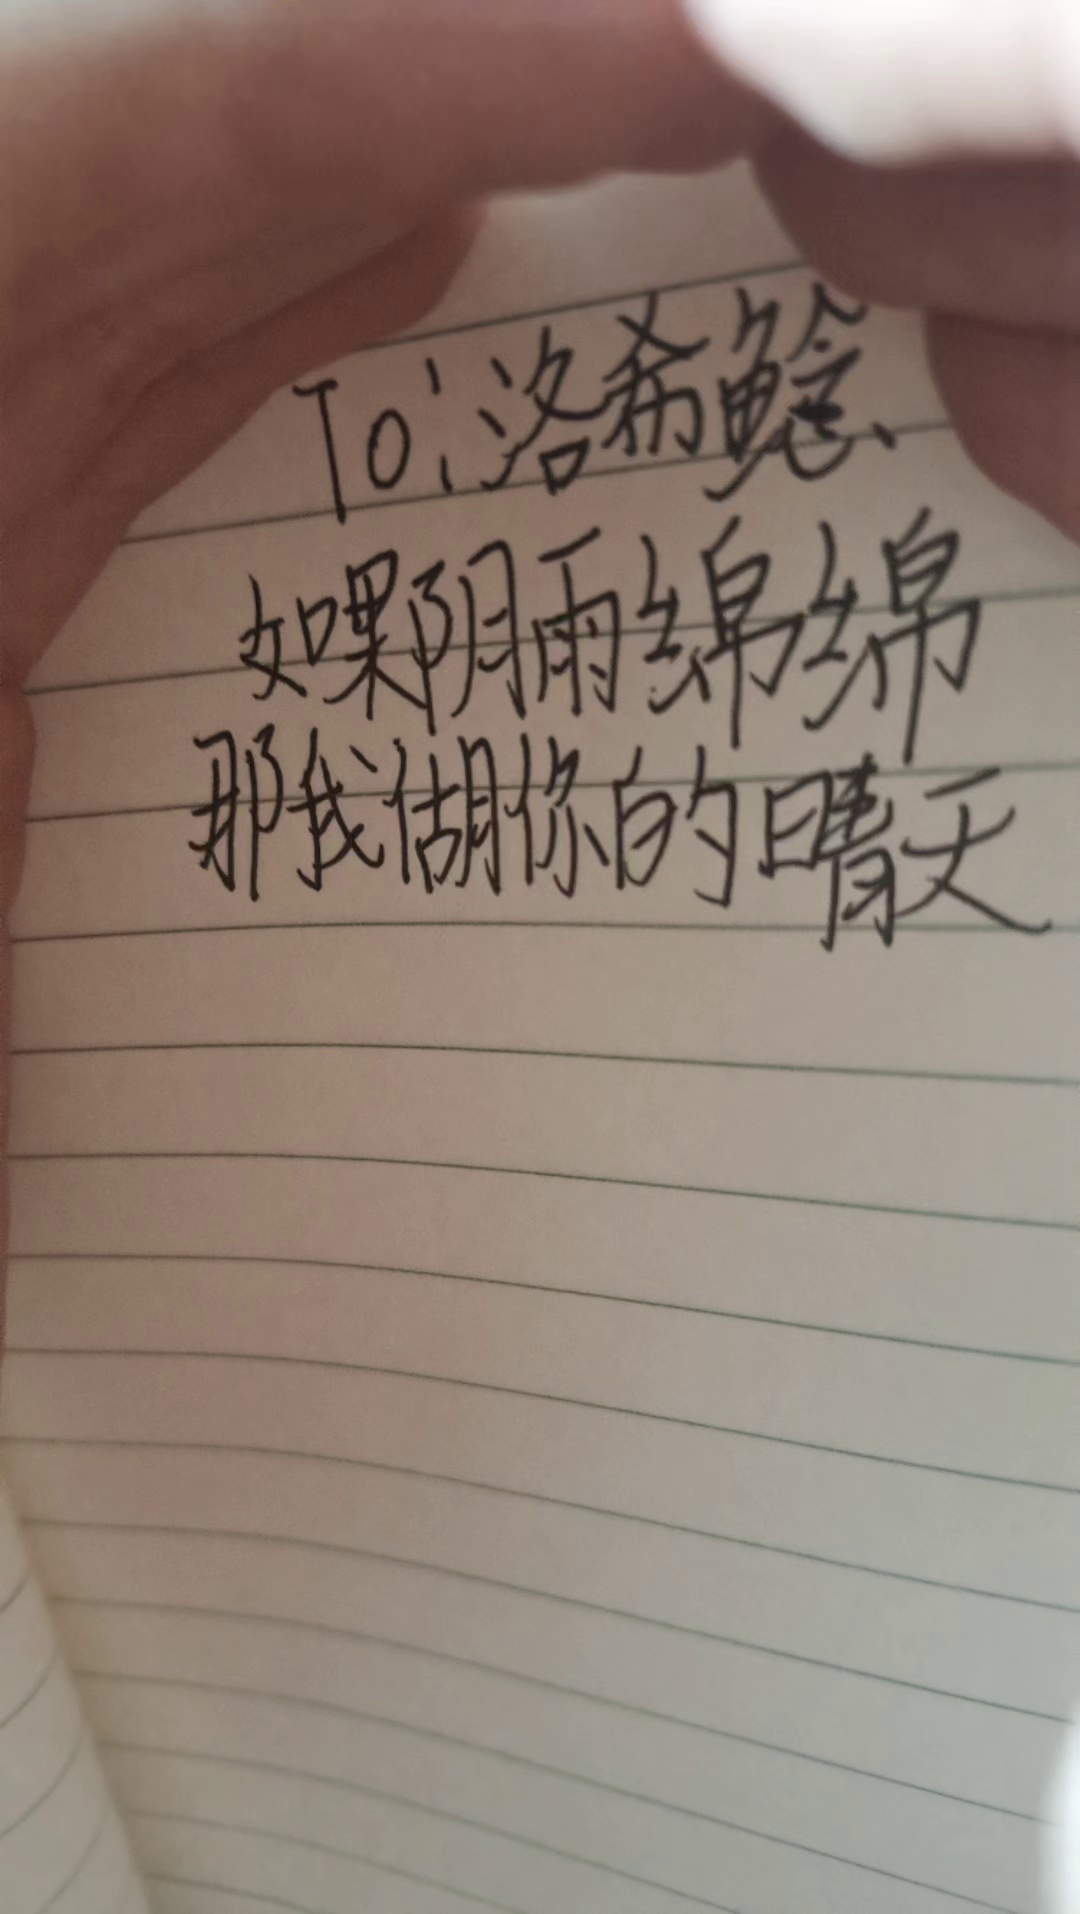 To:洛希鲶
如果阴雨绵绵
那我做你的晴天